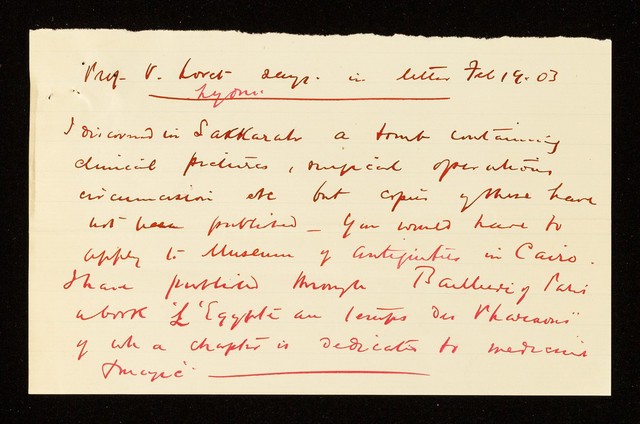 Prof V. Loret says. in letter Feb 19. 03
Lyons.
I discovered in Sakkarah a tomb containing
clinical pictures, surgical operations
circumcision etc but copies of these have
not been published – You would have to
apply to Museum of Antiquities in Cairo.
I have published through Bailliere of Paris
a book "L'Egypte au temps des Pharaons"
of wh a chapter is dedicated to medicine
& magic.